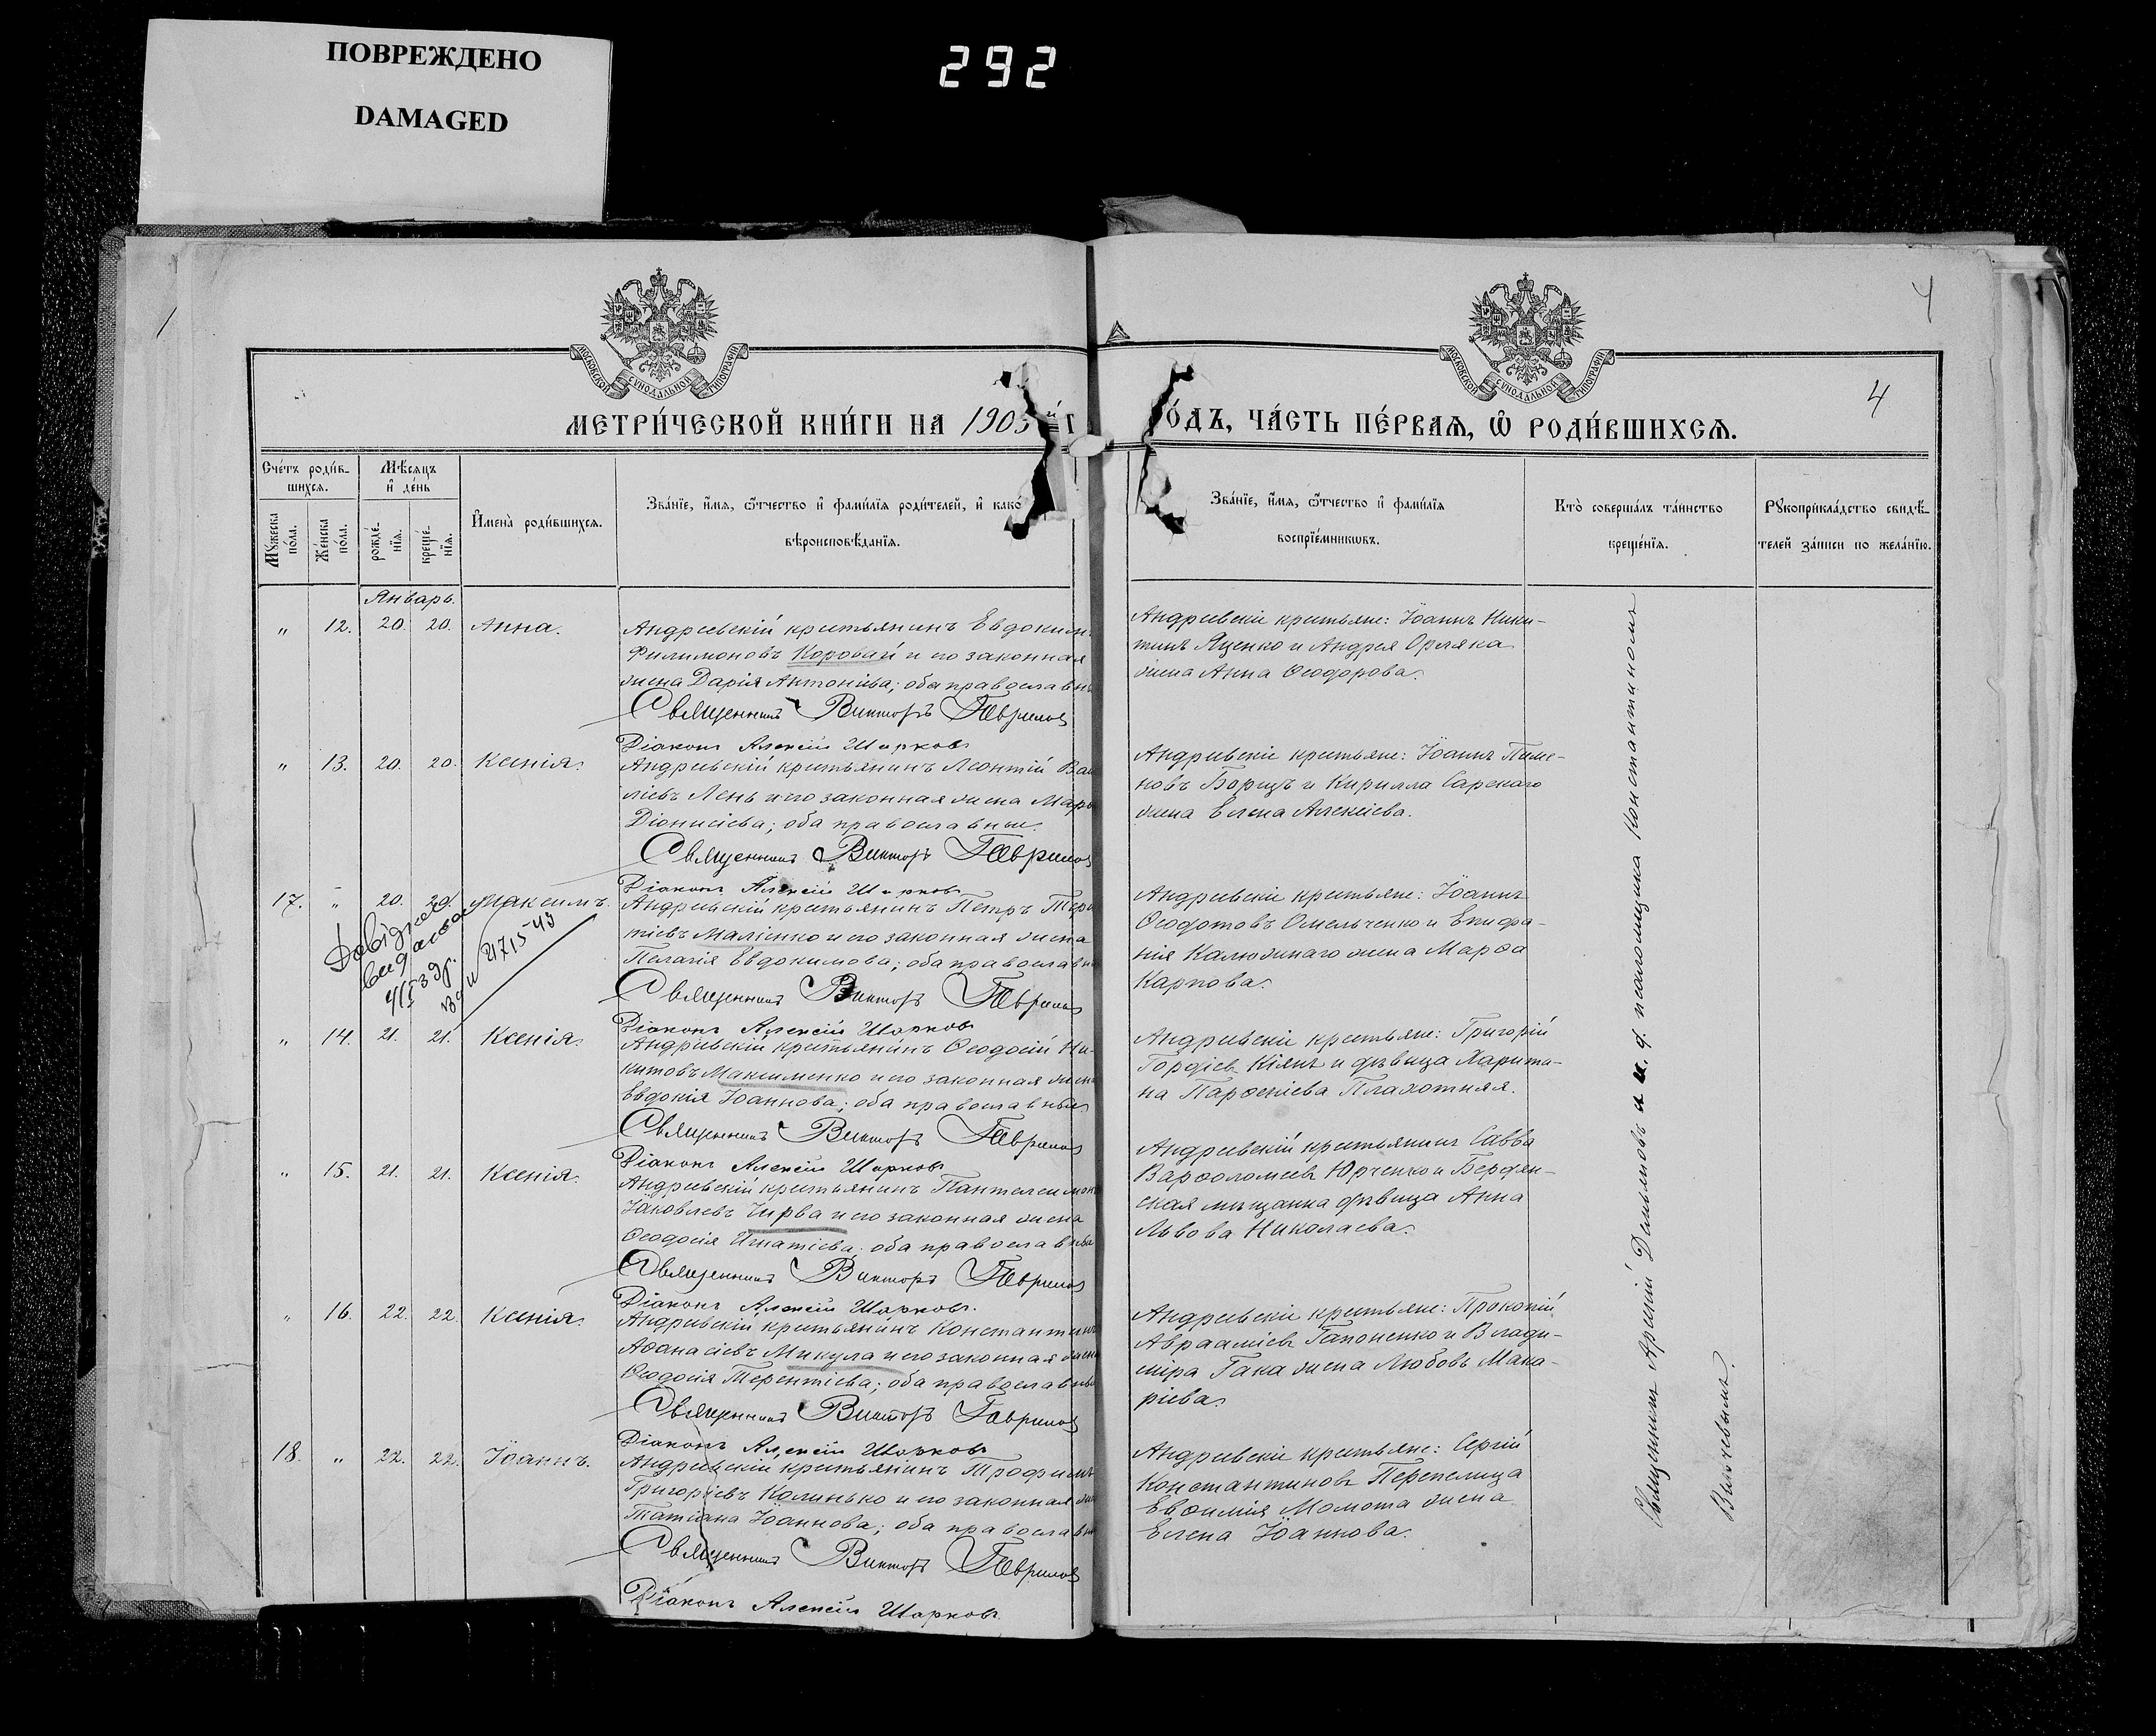 ПОВРЕЖДЕНО
DAMAGED
292
4
МОСКОВСКОЙ СѴНОДАЛЬНОЙ ТИПОГРАФІИ
МОСКОВСКОЙ СѴНОДАЛЬНОЙ ТИПОГРАФІИ
4
МЕТРИ́ЧЕСКОЙ КНИ́ГИ НА 1903й Г
О́ДЪ, ЧА́СТЬ ПЕ́РВАѦ, Ѡ҆ РОДИ́ВШИХСѦ.
Сче́тъ роди́в-
шихсѧ.
Мꙋ́жеска по́ла.
Же́нска по́ла.
Мѣ́сѧцъ
и҆ де́нь
рожде́-
нїѧ.
креще́-
нїѧ.
И҆мена̀ роди́вшихсѧ.
Зва́нїе, и҆́мѧ, ѻ҆́тчество и҆ фами́лїѧ роди́телей, и҆ како́
вѣроисповѣ́данїѧ.
Зва́нїе, и҆́мѧ, ѻ҆́тчество и҆ фами́лїѧ
воспрїе́мникѡвъ.
Кто̀ соверша́лъ та́инство
креще́нїѧ.
Рꙋкоприкла́дство свидѣ́-
телей за́писи по жела́нїю.
Январь.
„ 12. 20. 20. Анна.
Андреевскій крестьянинъ Евдокимъ
Филимоновъ Коровай и его законная
жена Дарія Антоніева; оба православны
Священникъ Викторъ Гаврилов
Діаконъ Алексій Шарковъ
Андреевскіе крестьяне: Іоаннъ Ники-
тинъ Яценко и Андрея Орляка
жена Анна Ѳеодорова.
„ 13. 20. 20. Ксенія.
Андреевскій крестьянинъ Леонтій Ва
ліевъ Лень и его законная жена Мар
Діонисіева; оба православные.
Священникъ Викторъ Гаврилов
Діаконъ Алексій Шарковъ
Андреевскіе крестьяне: Іоаннъ Пиме-
новъ Борщъ и Кирилла Сарскаго
жена Елена Алексіева.
17. „ 20. 20. Максимъ.
Довідка
видана
Андреевскій крестьянинъ Петръ Тер
тіевъ Маліенко и его законная жена
Пелагія Евдокимова; оба православны
Священникъ Викторъ Гаврилов
Діаконъ Алексій Шарковъ
Андреевскіе крестьяне: Іоаннъ
Ѳеодотовъ Омельченко и Епифа-
нія Калюжнаго жена Марѳа
Карпова.
„ 14. 21. 21. Ксенія.
Андреевскій крестьянинъ Ѳеодосій Ни-
китовъ Максименко и его законная жена
Евдокія Іоаннова; оба православные
Священникъ Викторъ Гаврилов
Діаконъ Алексій Шарковъ
Андреевскіе крестьяне: Григорій
Гордіевъ Кіянъ и дѣвица Харити-
на Парѳеніева Плахотная.
„ 15. 21. 21. Ксенія.
Андреевскій крестьянинъ Пантелеимонъ
Іаковлевъ Чирва и его законная жена
Ѳеодосія Игнатіева; оба православны
Священникъ Викторъ Гаврилов
Діаконъ Алексій Шарковъ.
Андреевскій крестьянинъ Савва
Варѳоломеевъ Юрченко и Бердян-
ская мѣщанка дѣвица Анна
Львова Николаева.
„ 16. 22. 22. Ксенія.
Андреевскій крестьянинъ Константинъ
Аѳанасіевъ Микула и его законная жена
Ѳеодосія Терентіева; оба православны
Священникъ Викторъ Гаврилов
Діаконъ Алексій Шарковъ
Андреевскіе крестьяне: Прокопій
Авраамiевъ Гапоненко и Влади-
міра Гака жена Любовь Мака-
ріева.
18. „ 22. 22. Іоаннъ.
Андреевскій крестьянинъ Трофимъ
Григоріевъ Колинько и его законная
Татіана Іоаннова; оба православны
Священникъ Викторъ Гаврилов
Діаконъ Алексій Шарковъ.
Андреевскіе крестьяне: Сергій
Константиновъ Перепелица
Евѳимія Момота жена
Елена Іоаннова.
Священникъ Арсеній Демьяновъ и. д. псаломщика Константиномъ